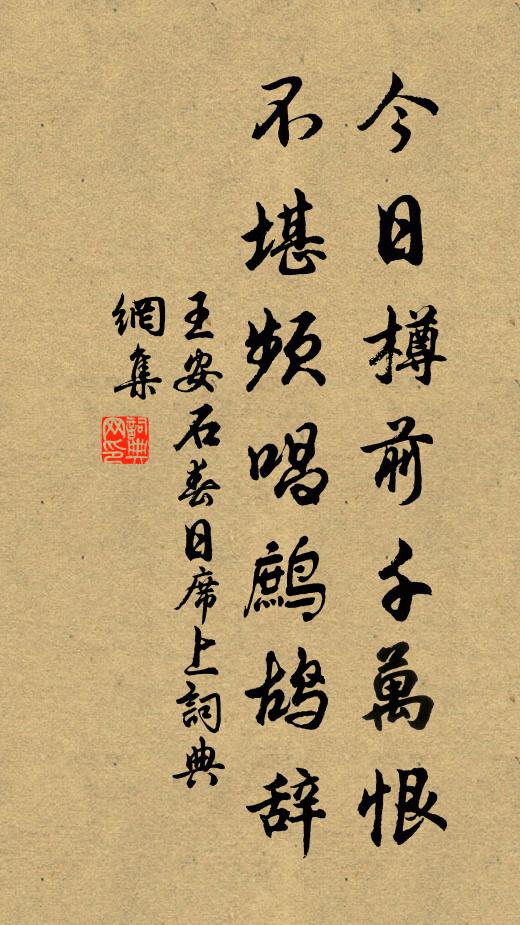 今日樽前千萬恨
不堪頻唱鷓鴣辞
王安石春日席上詞典
網集
詞典网印